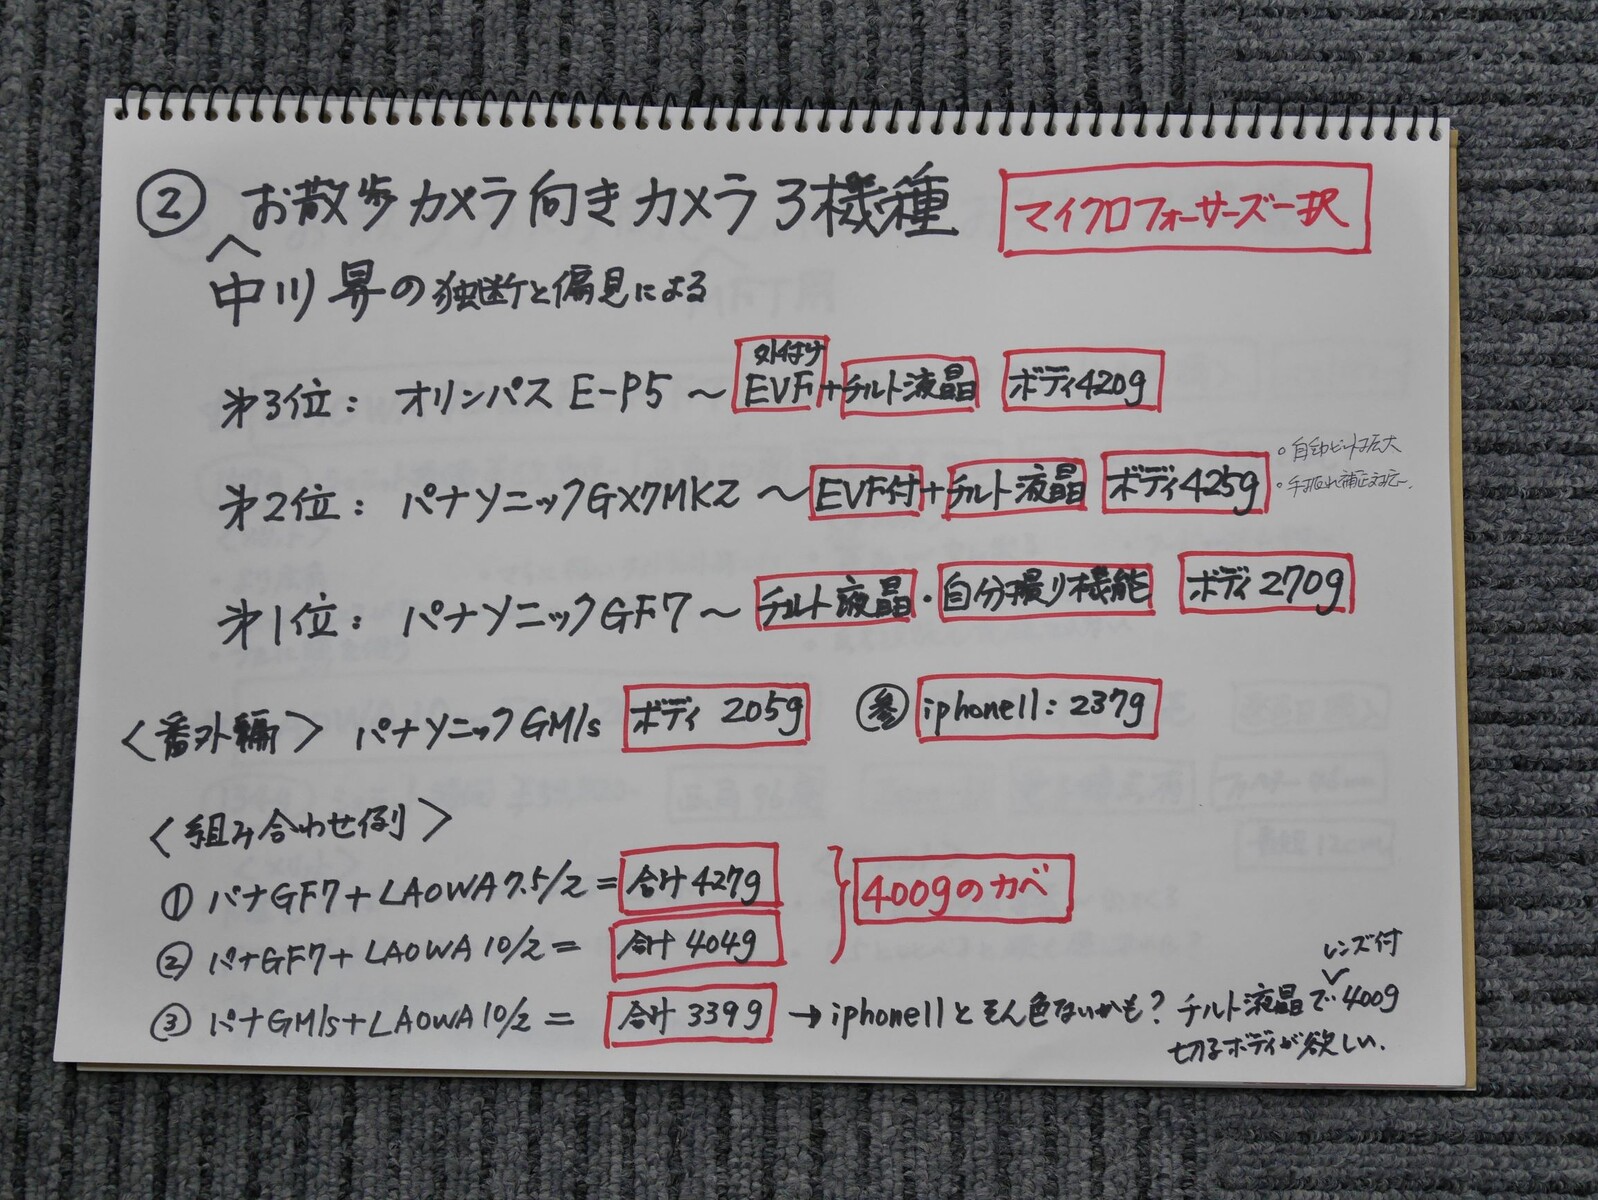 ② お散歩カメラ向きカメラ3機種 マイクロフォーサーズ一択
中川昇の独断と偏見による
第3位: オリンパス E-P5 〜 外付け EVF+チルト液晶 ボディ420g
第2位: パナソニックGX7MK2 〜 EVF付+チルト液晶 ボディ425g
・自動ピント拡大
・手振れ補正対応.
第1位: パナソニックGF7〜 チルト液晶・自分撮り機能 ボディ270g
<番外編> パナソニックGM1s ボディ 205g 参 iphone11: 237g
<組み合わせ例>
① パナGF7+LAOWA7.5/2= 合計427g
400gのカベ
② パナGF7+LAOWA10/2= 合計404g
③ パナGM1s+LAOWA10/2= 合計339g →iphone11とそん色ないかも? チルト液晶で400g
レンズ付
切るボディが欲しい.